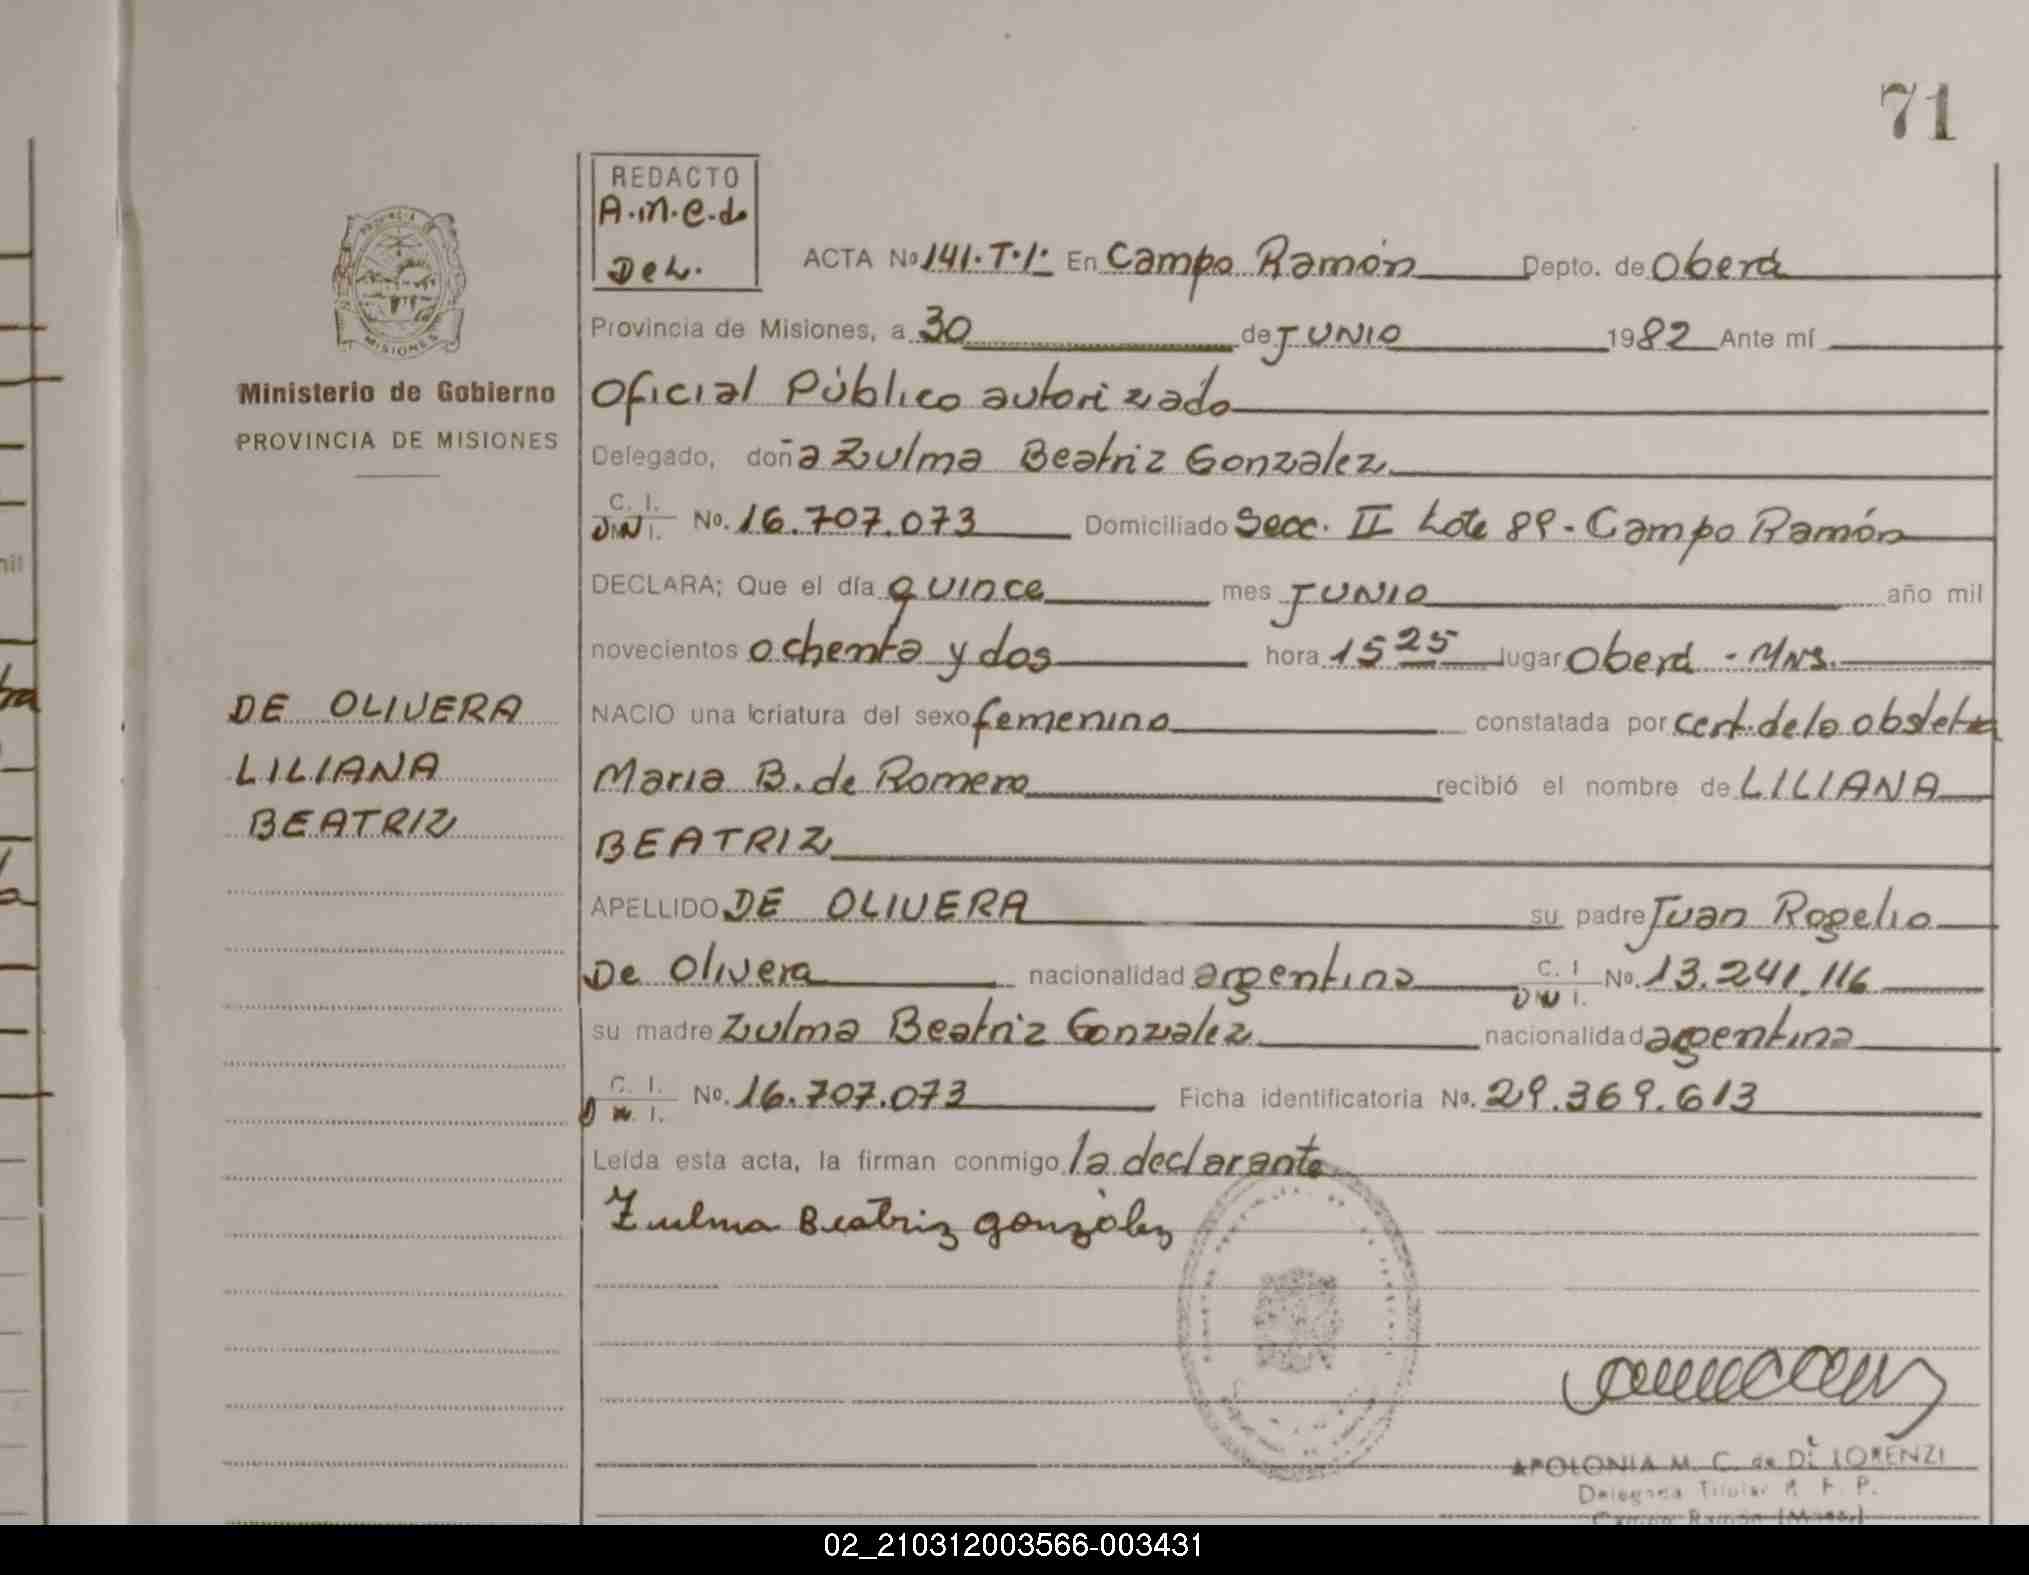 71
REDACTO
A.M.C.d.
Del.
PROVINCIA DE
MISIONES
Ministerio de Gobierno
PROVINCIA DE MISIONES
DE OLIVERA
LILIANA
BEATRIZ
ACTA No 141.T.1: En Campo Ramón Depto. de Oberá
Provincia de Misiones, a 30 de JUNIO 1982 Ante mí
Oficial Público autorizado
Delegado, doña Zulma Beatriz Gonzalez
C. I. D.N.I. No. 16.707.073 Domiciliado Secc. II Lote 89 - Campo Ramón
DECLARA; Que el día quince mes JUNIO año mil
novecientos ochenta y dos hora 15 25 lugar Oberá - Mns.
NACIO una criatura del sexo femenino constatada por cert. de la obstetra
Maria B. de Romero recibió el nombre de LILIANA
BEATRIZ
APELLIDO DE OLIVERA su padre Juan Rogelio
De Olivera nacionalidad argentina C. I. D.N.I. No. 13.241.116
su madre Zulma Beatriz Gonzalez nacionalidad argentina
C. I. D.N.I. No. 16.707.073 Ficha identificatoria No. 29.369.613
Leída esta acta, la firman conmigo la declarante
Zulma Beatriz gonzález
APOLONIA M. C. de Di LORENZI
Delegada Titular R. P. P.
Campo Ramón (Mnes.)
02_210312003566-003431